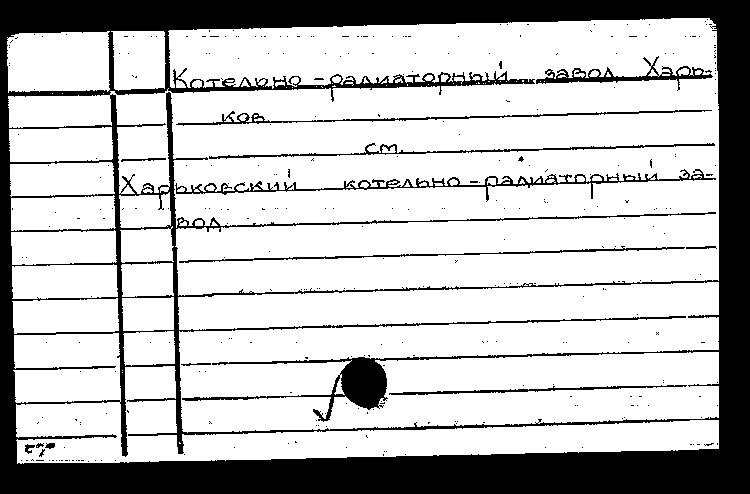 Котельно-радиаторный завод, Харь-
ков
см.
Харьковский котельно-радиаторный за-
вод